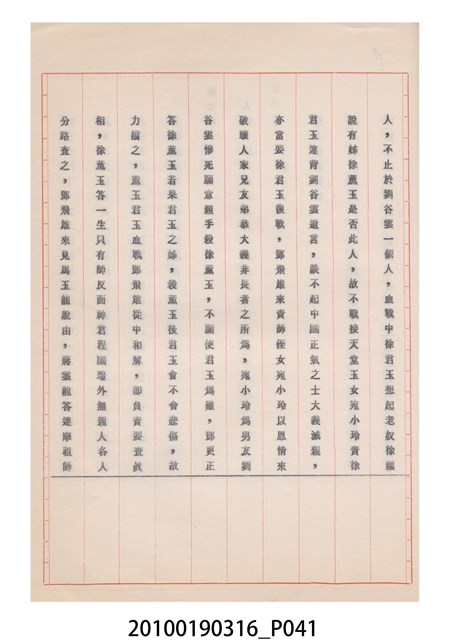 人，不止於劉谷雲一個人，血戰中徐君玉想起老奴徐福
說有姊徐薰玉是否此人，故不戰接天堂玉女宛小玲責徐
君玉違背劉谷雲遺言，談不起中國正氣之士大義滅親，
亦當要徐君玉復戰，鄧飛雄來責師侄女宛小玲以恩情來
破壞人家兄友弟恭大義非長者之所為，宛小玲為男友劉
谷雲慘死願意親手殺徐薰玉，不願使君玉為難，鄧更正
答徐薰玉若果君玉之姊，殺薰玉後君玉會不會悲傷，故
力擋之，薰玉君玉血戰鄧飛雄從中和解，即負責要查眞
相，徐薰玉答一生只有師反面神君程國瑞外無親人各人
分路查之，鄧飛雄來見馬玉龍說由，蔣雲龍答達摩祖師
20100190316_P041